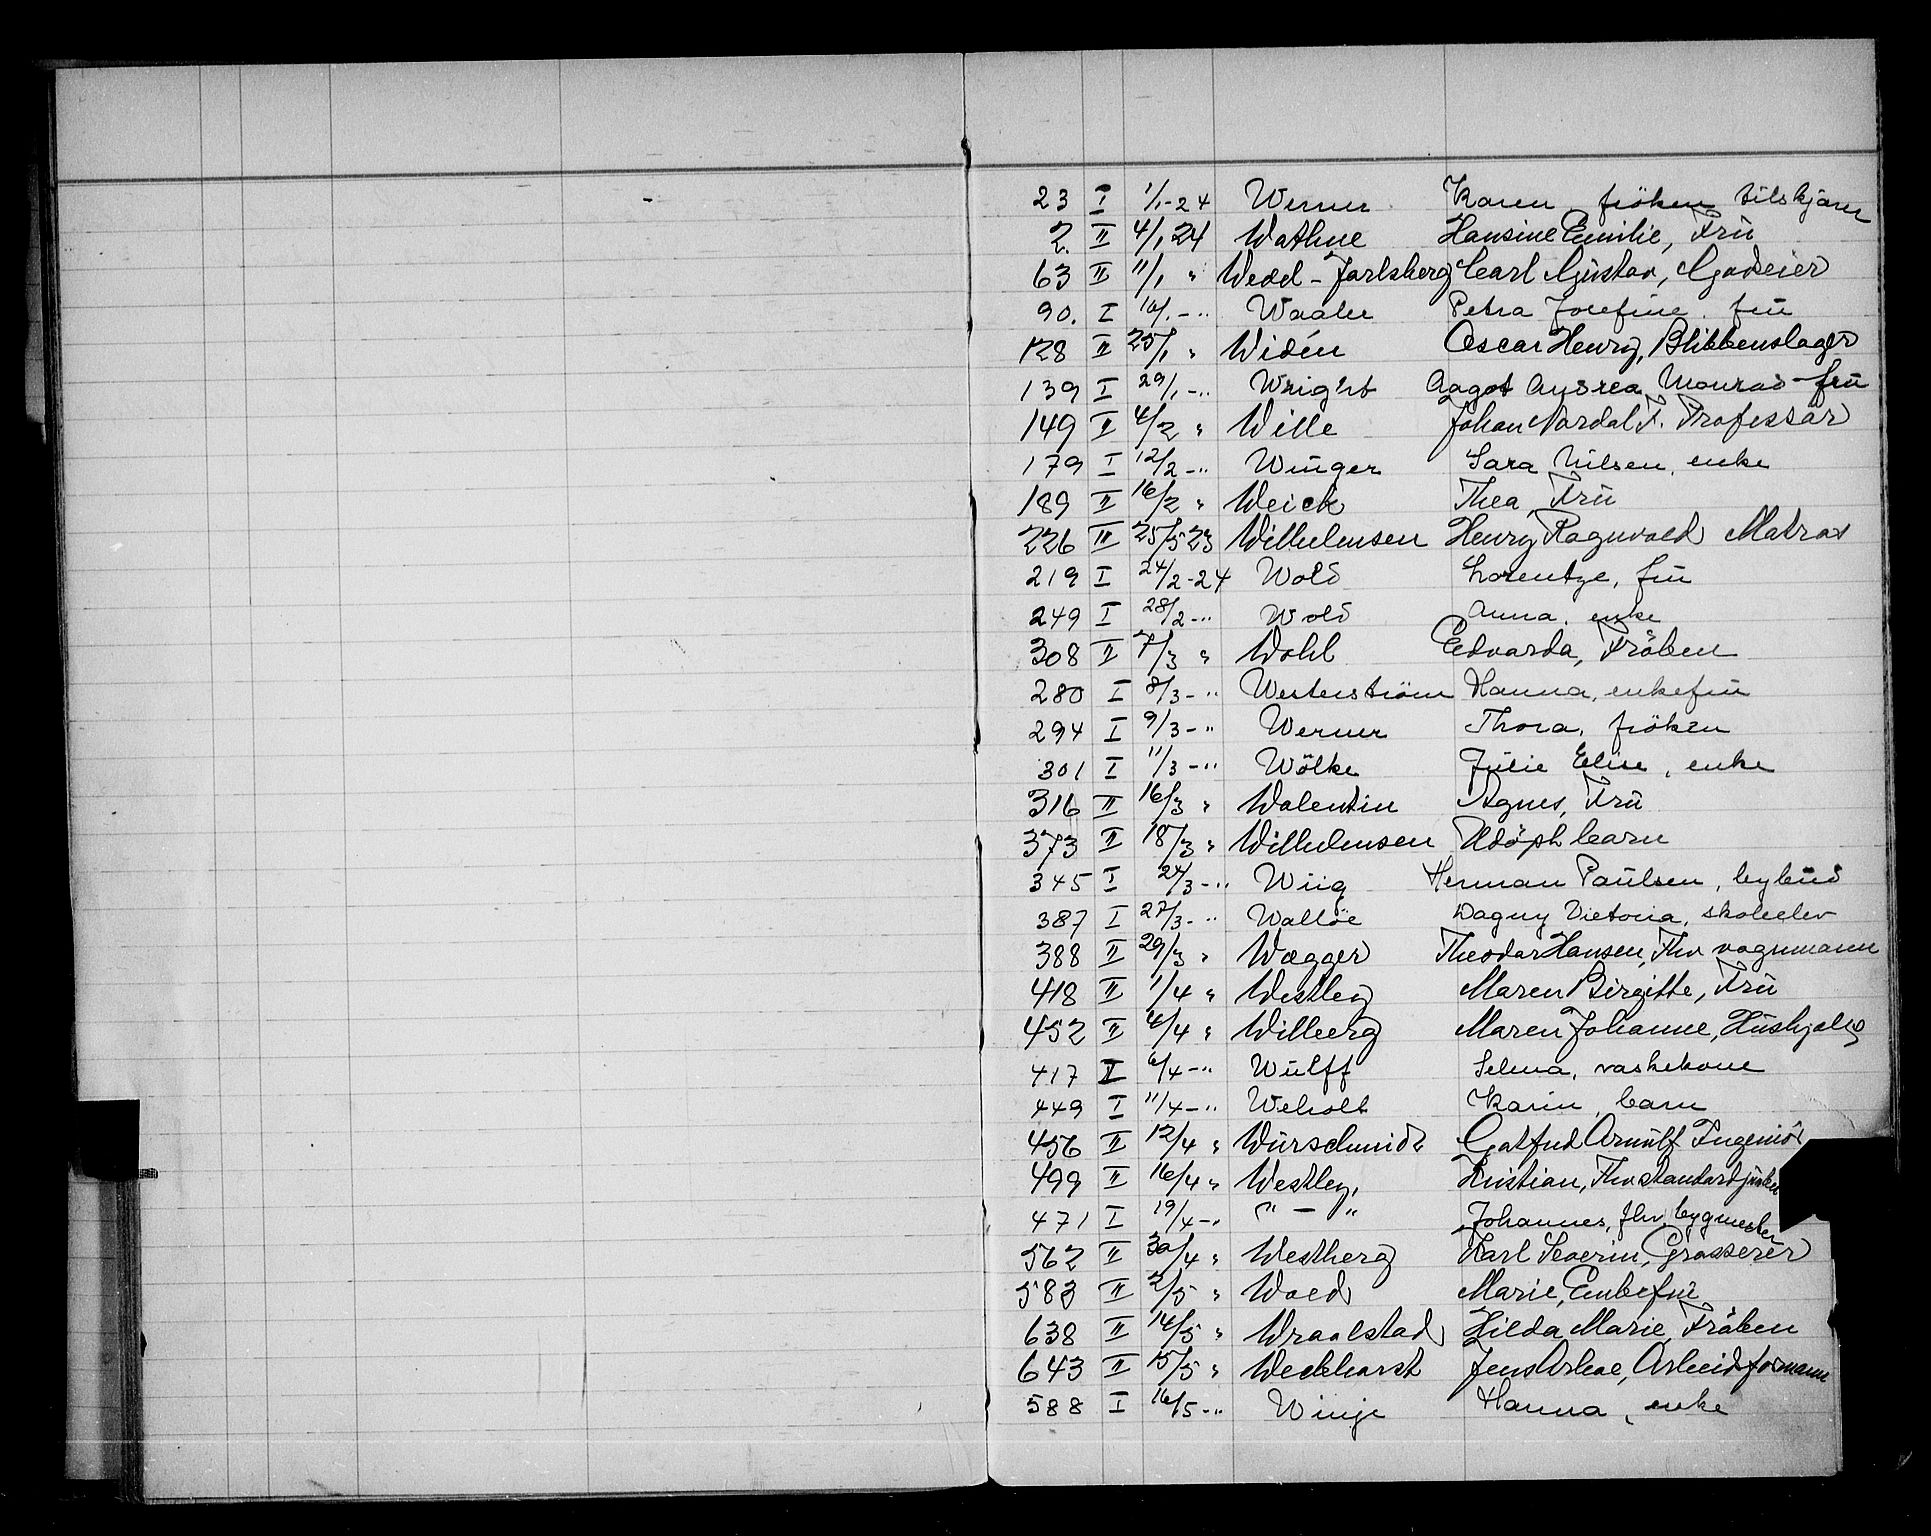 23 I 1/1-24 Werner Karen, fröken tilskjærer
2. II 4/1 24 Wathne Hansine Emilie, Frü
63 II 11/1 " Wedel-Jarlsberg Carl Güstav, Godseier
90. I 10/1-" Waaler Petra Josefine, frü
128 II 25/1 " Widén Oscar Henry, Blikkenslager
139 I 29/1-" Wright Aagot Aysrea Monrad-frü
149 II 4/2 " Wille Johan Nordal F. Professor
179 I 12/2-" Winger Sara Nilsen, enke
189 II 16/2 " Weick Thea, Frü
226 II 25/5 23 Wilhelmsen Henry Ragnvald Matros
219 I 24/2-24 Wold Lorentze, frü
249 I 28/2-" Wold Anna, enke
308 II 7/3 " Wahl Edvarda, Fröken
280 I 8/3-" Westerström Hanna, enkefrü
294 I 9/3-" Werner Thora, fröken
301 I 11/3-" Wölke Jülie Elise, enke
316 II 16/3 " Walentin Agnes, Frü
373 II 18/3 " Wilhelmsen Udöpt barn
345 I 24/3-" Wiig Herman Paülsen, bybüd
387 I 27/3-" Walløe Dagny Victoria, skoleelev
388 II 29/3 " Wægger Theodor Hansen, Fhv vognmann
418 II 1/4 " Westley Maren Birgitte, Frü
452 II 4/4 " Wilberg Maren Johanne, Hüshjelp
417 I 6/4-" Wülff Selma, vaskekone
449 I 11/4-" Weholt Karin, barn
456 II 12/4 " Würschmidt Gotfred Arnülf Ingeniör
499 II 16/4 " Westley, Kristian, Fhv standartjunker
471 I 19/4-" "-" Johannes, fhv. bygmester
562 II 30/4 " Westberg Karl Severin, Grosserer
583 II 2/5 " Wold Marie, Enkefrü
638 II 14/5 " Wraalstad Hilda Marie, Fröken
643 II 15/5 " Weckhorst Jens Arbeidsformann
588 I 16/5-" Winje Hanna, enke